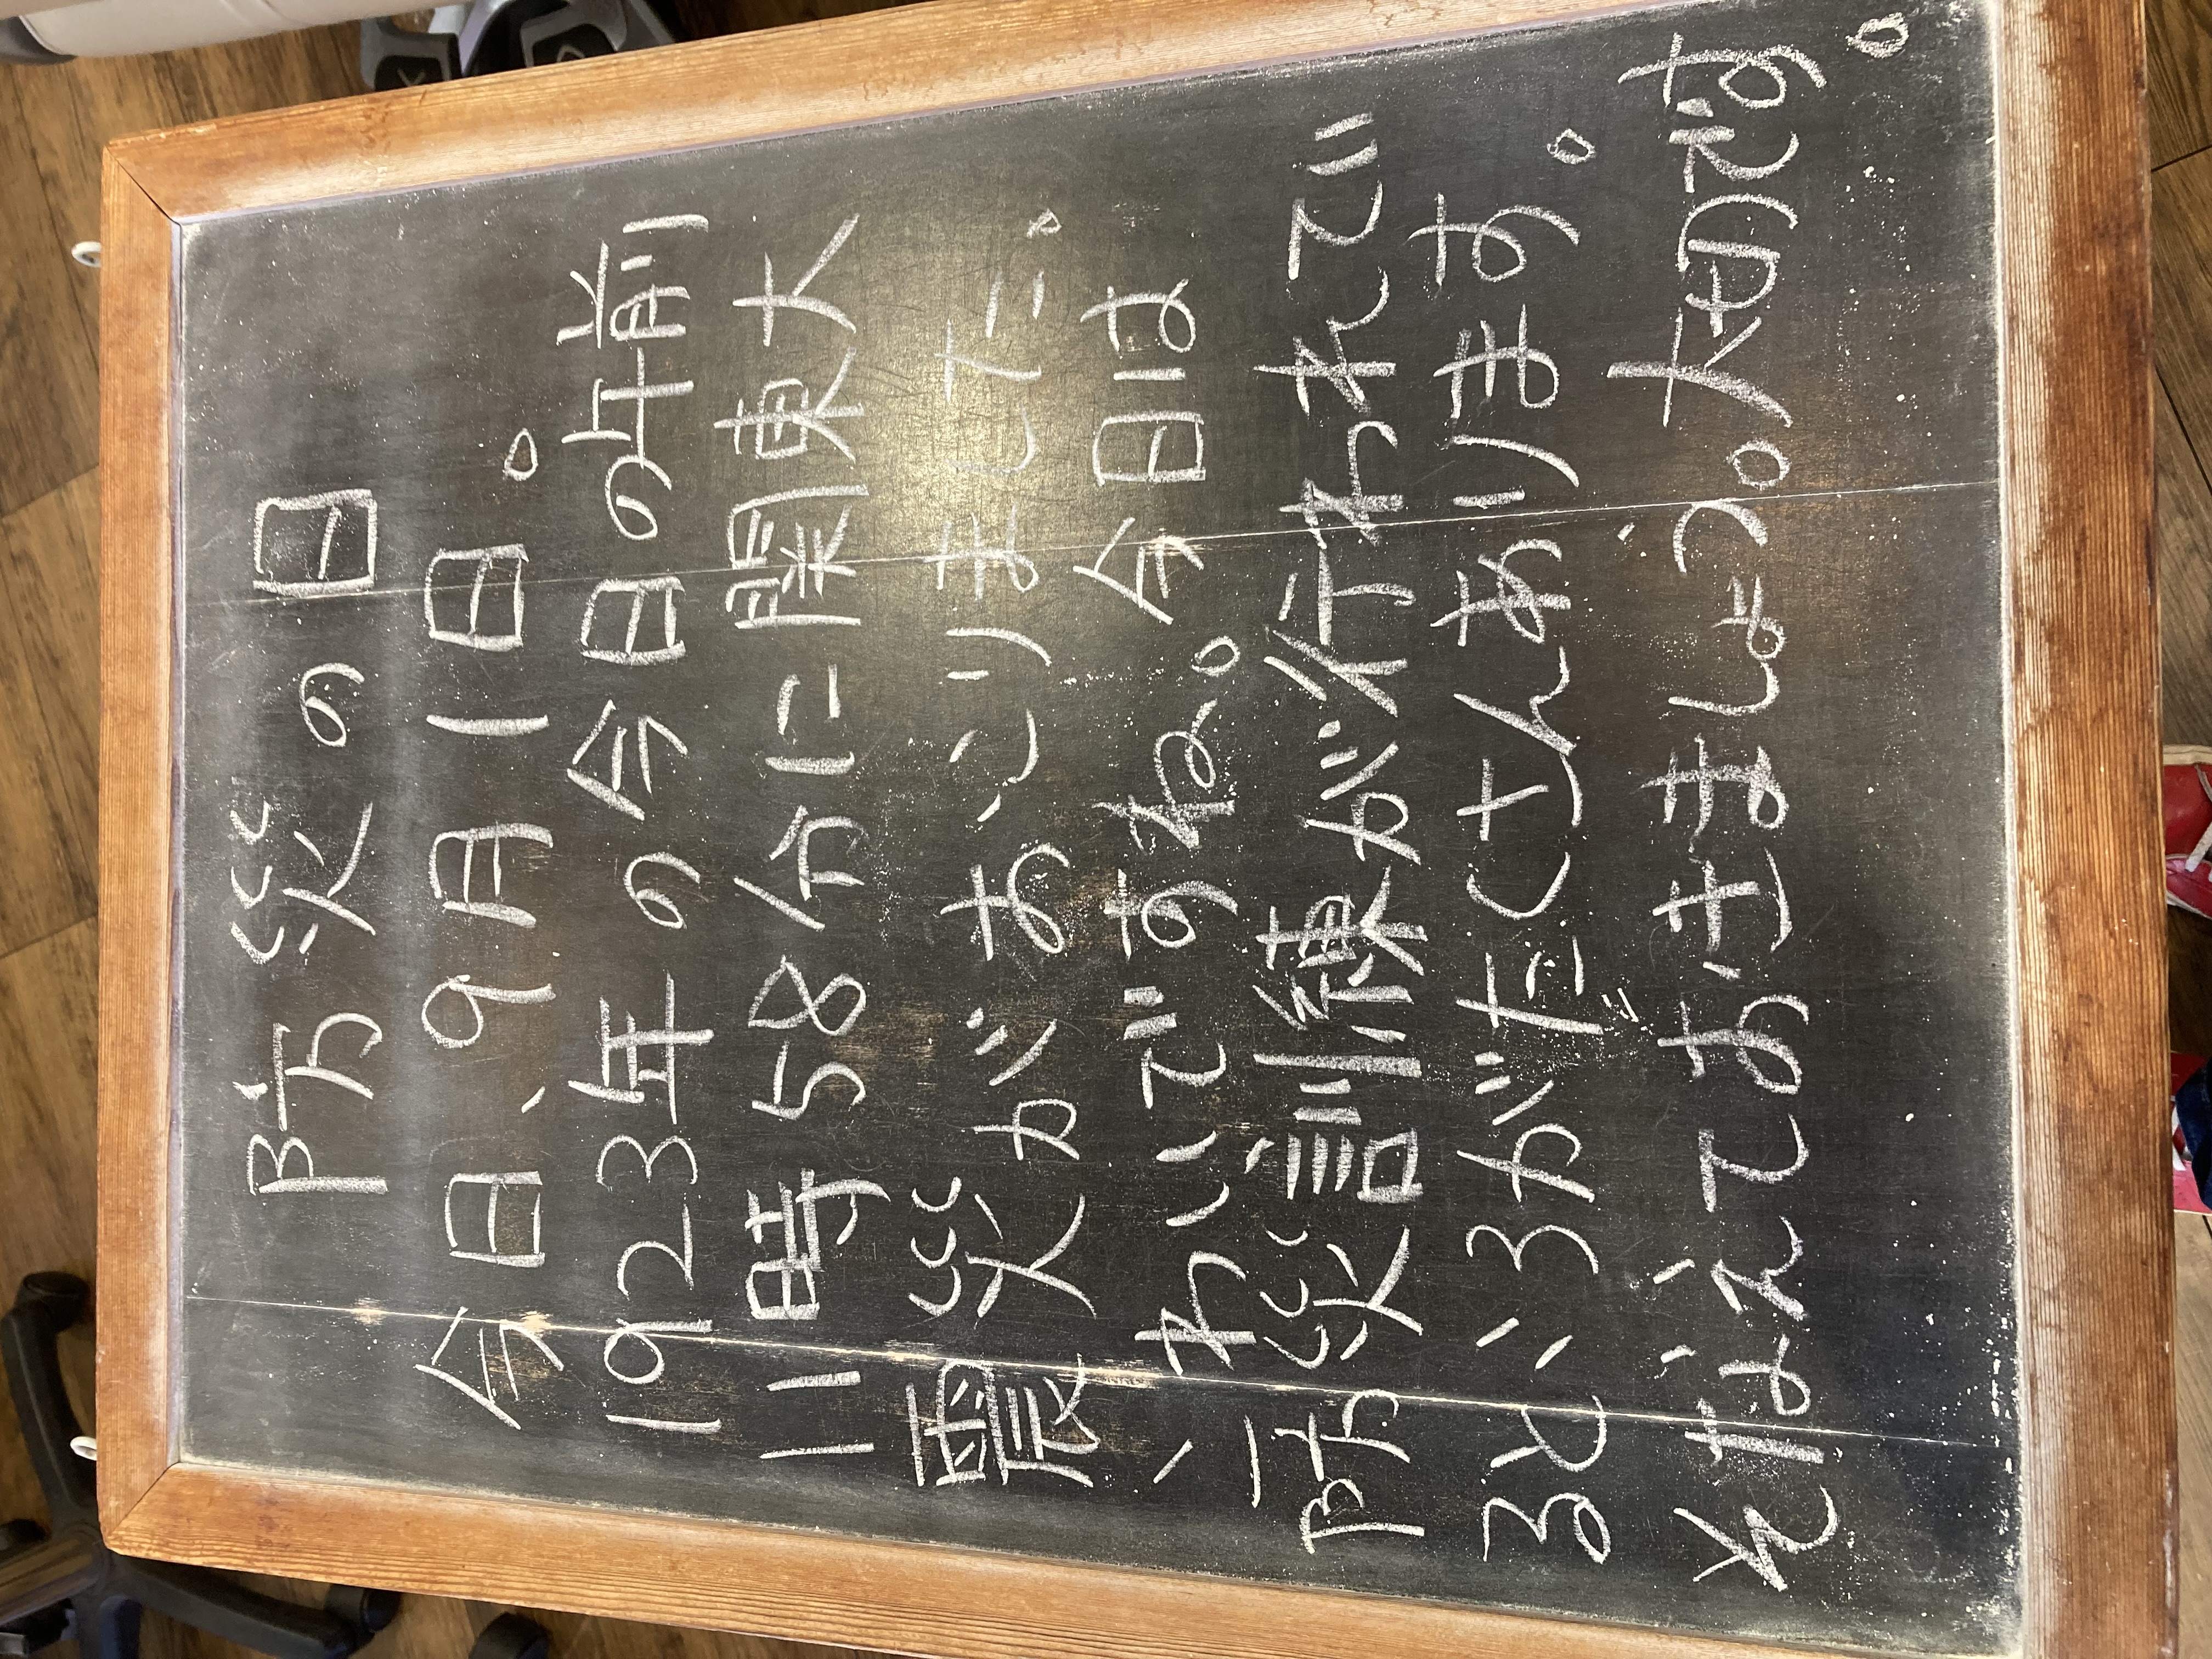 防災の日
今日、9月1日。
1923年の今日の午前
11時58分に関東大
震災がおこりました。
こわいですね。今日は
防災訓練が行われてい
るところがたくさんあります。
そなえておきましょう。大切です。